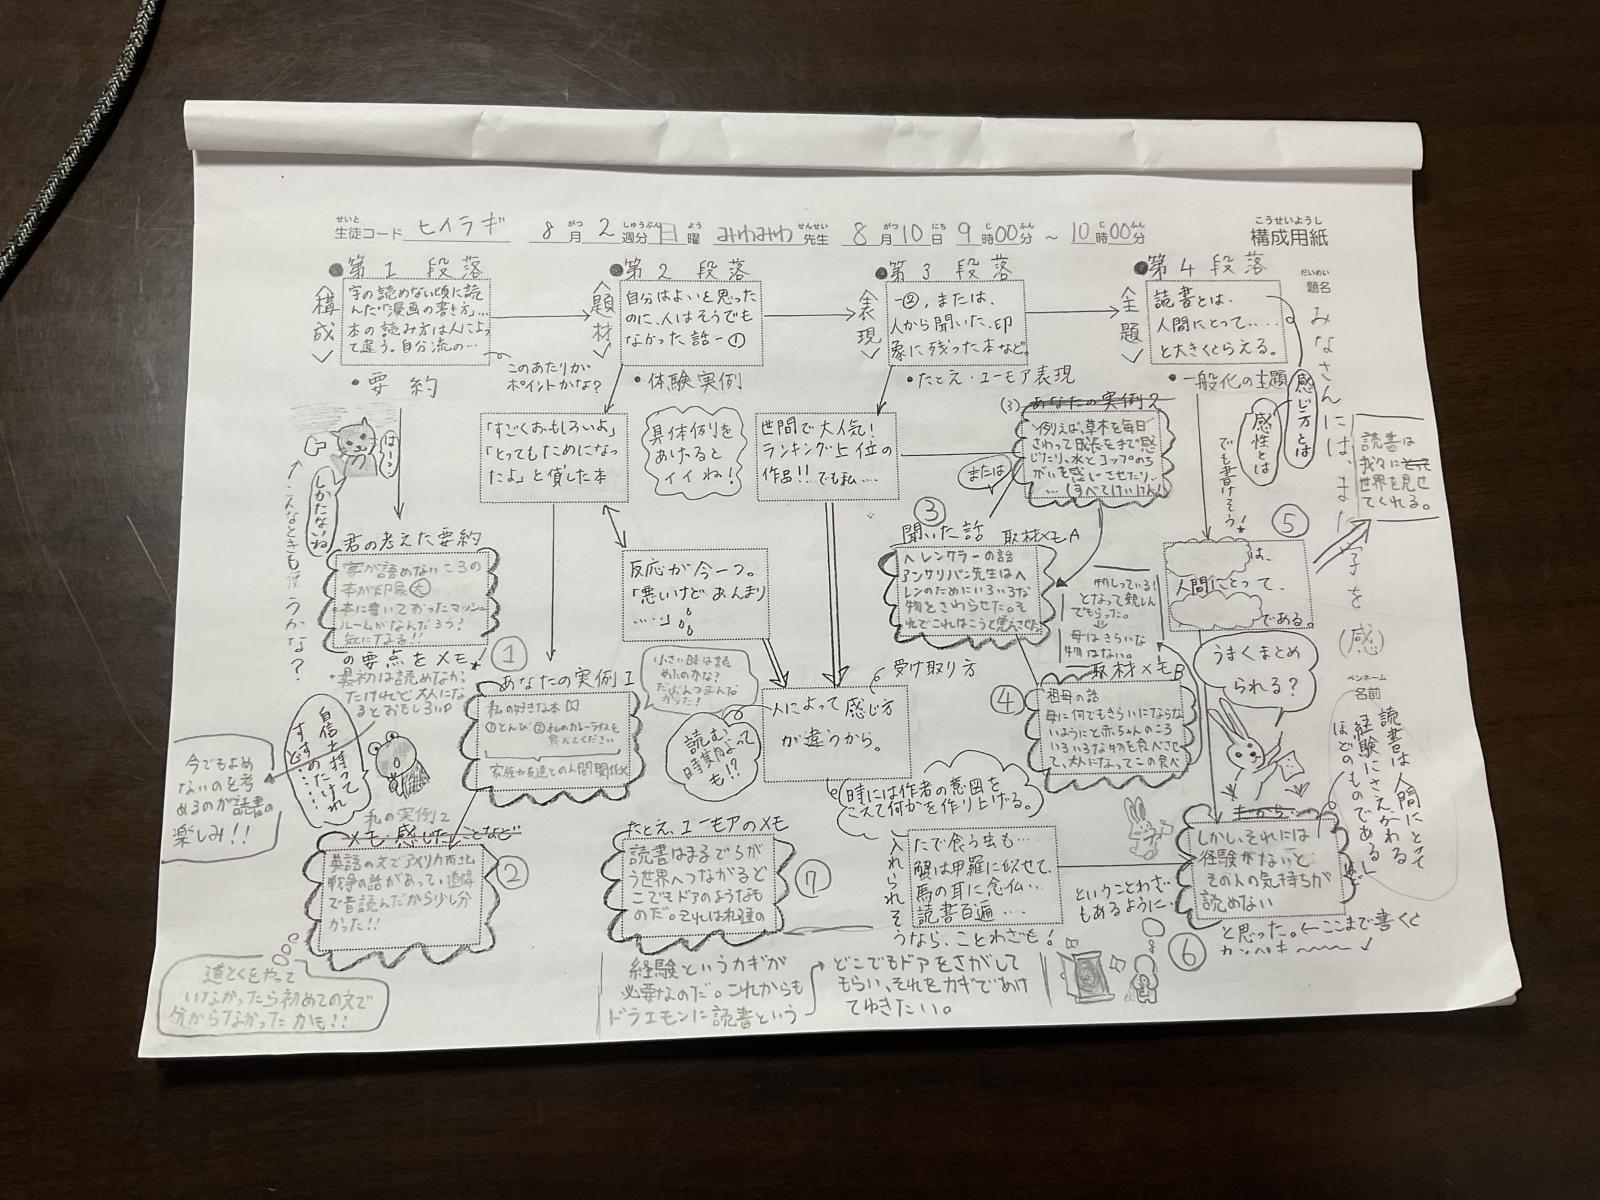 生徒コード ヒイラギ 8月2週分 日曜 みわみわ先生 8月10日9時00分～10時00分 構成用紙
●第1段落
〈構成〉
字の読めない頃に読
んだ「漫画の書き方」…
本の読み方は人によっ
て違う。自分流の…
このあたりが
ポイントかな？
・要約
●第2段落
〈題材〉
自分はよいと思った
のに、人はそうでも
なかった話ー①
・体験実例
●第3段落
〈表現〉
ー②，または、
人から聞いた、印
象に残った本など。
・たとえ・ユーモア表現
●第4段落
〈主題〉
読書とは、
人間にとって‥‥
と大きくとらえる。
・一般化の主題
感じ方とは
感性とは
でも書けそう！
題名
みなさんには、
字を(感)
読書は
世界を見せ
てくれる。
はーン
しかたないね
こんなときも使うかな？
「すごくおもしろいよ」
「とってもためになっ
たよ」と貸した本
具体例を
あげると
イイね！
世間で大人気！
ランキング上位の
作品!!でも私‥‥
(3) あなたの実例2
例えば、草木を毎日
さわって成長をまで感
じたり、水とコップのち
がいを感じさせたり、
…(すべてけいけん)
または
君の考えた要約
字が読めないころの
本が印象大
本に書いてあったマッシュ
ルームがなんだろう？
気になる!!
の要点をメモ！
・最初は読めなか
ったけれど大人にな
るとおもしろい
反応が今一つ。
「悪いけど、あんまり
……」
③
聞いた話 取材メモA
ヘレンケラーの話
アンサリバン先生はヘ
レンのためにいろいろな
物をさわらせた。そ
れでこれはこうと覚えさせた。
物しっている！
となって親しん
でもらった。
母はきらいな
物はない。
⑤
は、
人間にとって、
である。
うまくまとめ
られる？
①
あなたの実例1
私の好きな本
①とんび ②私のカレーライスを
食べてください
家族や友達との人間関係
小さい時は読
めたのかな？
だぶんつまんな
かった！
受け取り方
人によって感じ方
が違うから。
読む
時期によって
も!?
④
取材メモB
祖母の話
母に何でもきらいにならな
いようにと赤ちゃんのころ
いろいろな物を食べさせ
て、大人になってこの食べ
ペンネーム
名前
読書は人間にとって
経験にさえかわる
ほどのものである
自信を持って
すすめたけれ
ど……
今でもよめ
ないのを考
めるのが読書の
楽しみ!!
私の実例2
メモ・感じたことなど
英語の文でアメリカ南北
戦争の話があって道徳
で昔読んだから少し分
かった!!
②
道とくをやって
いなかったら初めての文で
分からなかったかも!!
たとえ、ユーモアのメモ
読書はまるでちが
う世界へつながるど
こでもドアのようなも
のだ。それは私達の
⑦
時には作者の意図を
こえて何かを作り上げる。
入れられそ
うなら、ことわざも！
たで食う虫も…
蟹は甲羅に似せて、
馬の耳に念仏…
読書百遍‥‥
ということわざ
もあるように…
しかし、それには
経験がないと
その人の気持ちが
読めない
⑥
と思った。←ここまで書くと
カンペキ〜
経験というカギが
必要なのだ。これからも
ドラエモンに読書という
どこでもドアをさがして
もらい、それをカギであけ
てゆきたい。